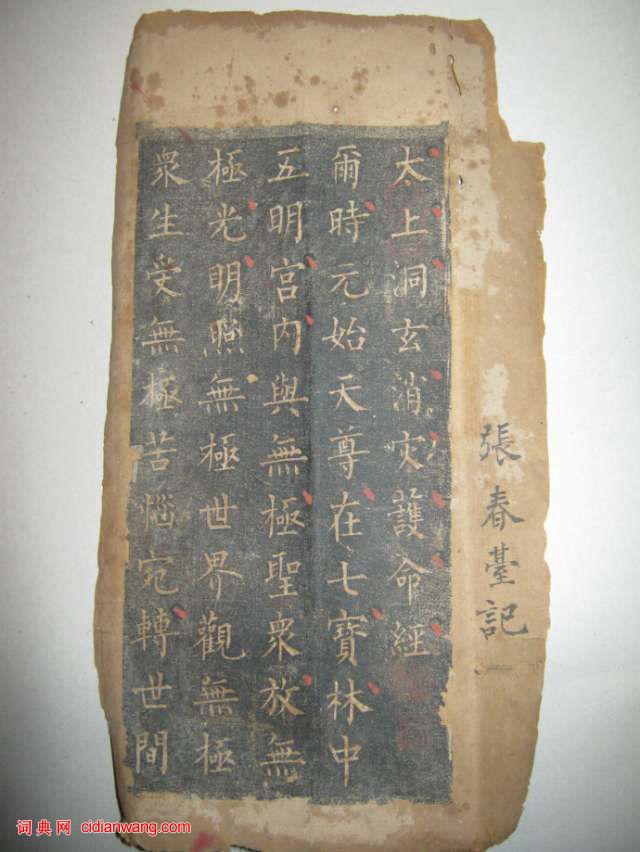 太上洞玄消灾護命經
爾時元始天尊在七寶林中
五明宮内與無極聖衆放無
極光明照無極世界觀無極
衆生受無極苦惱宛轉世間
張春臺記
词典网 cidianwang.com